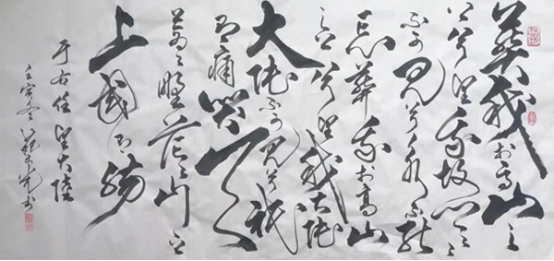 葬我於高山之
上兮望我故鄉〻〻
不可見兮永不能
忘葬我於高山
之上兮望我大陸
大陸不可見兮祇
有痛哭天
蒼〻野茫〻山之
上國有殤
于右任望大陸
壬寅冬 书